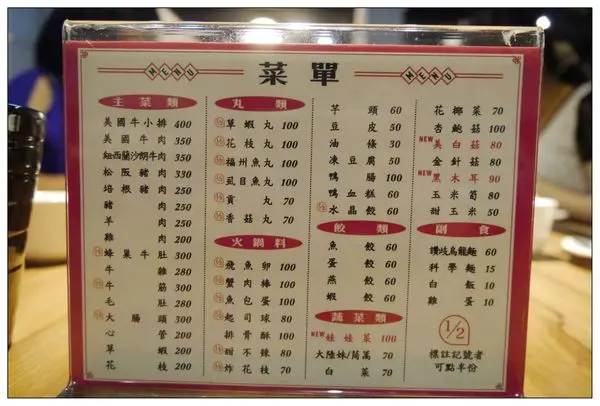 MENU 菜單 MENU
主菜類
美國牛小排 400
美國牛肉 350
紐西蘭沙朗牛肉 350
松阪豬肉 330
培根豬肉 230
豬肉 250
羊肉 250
雞肉 250
1/2 蜂巢牛肚 300
牛雜 280
1/2 牛筋 300
毛肚 280
1/2 大腸頭 300
心管 200
草蝦 200
花枝 200
丸類
1/2 草蝦丸 100
1/2 花枝丸 100
1/2 福州魚丸 100
1/2 虱目魚丸 100
1/2 貢丸 70
1/2 香菇丸 70
火鍋料
1/2 飛魚卵 100
1/2 蟹肉棒 100
1/2 魚包蛋 100
1/2 起司球 80
排骨酥 100
1/2 甜不辣 80
1/2 炸花枝 70
芋頭 60
豆皮 50
油條 30
凍豆腐 50
鴨腸 100
鴨血糕 60
1/2 水晶餃 60
餃類
魚餃 60
蛋餃 60
燕餃 60
蝦餃 60
蔬菜類
NEW 娃娃菜 100
大陸妹/茼萵 70
白菜 70
花椰菜 70
杏鮑菇 100
NEW 美白菇 80
金針菇 80
NEW 黑木耳 90
玉米筍 80
甜玉米 50
副食
讚歧烏龍麵 60
科學麵 15
白飯 10
雞蛋 10
1/2
標註記號者
可點半份